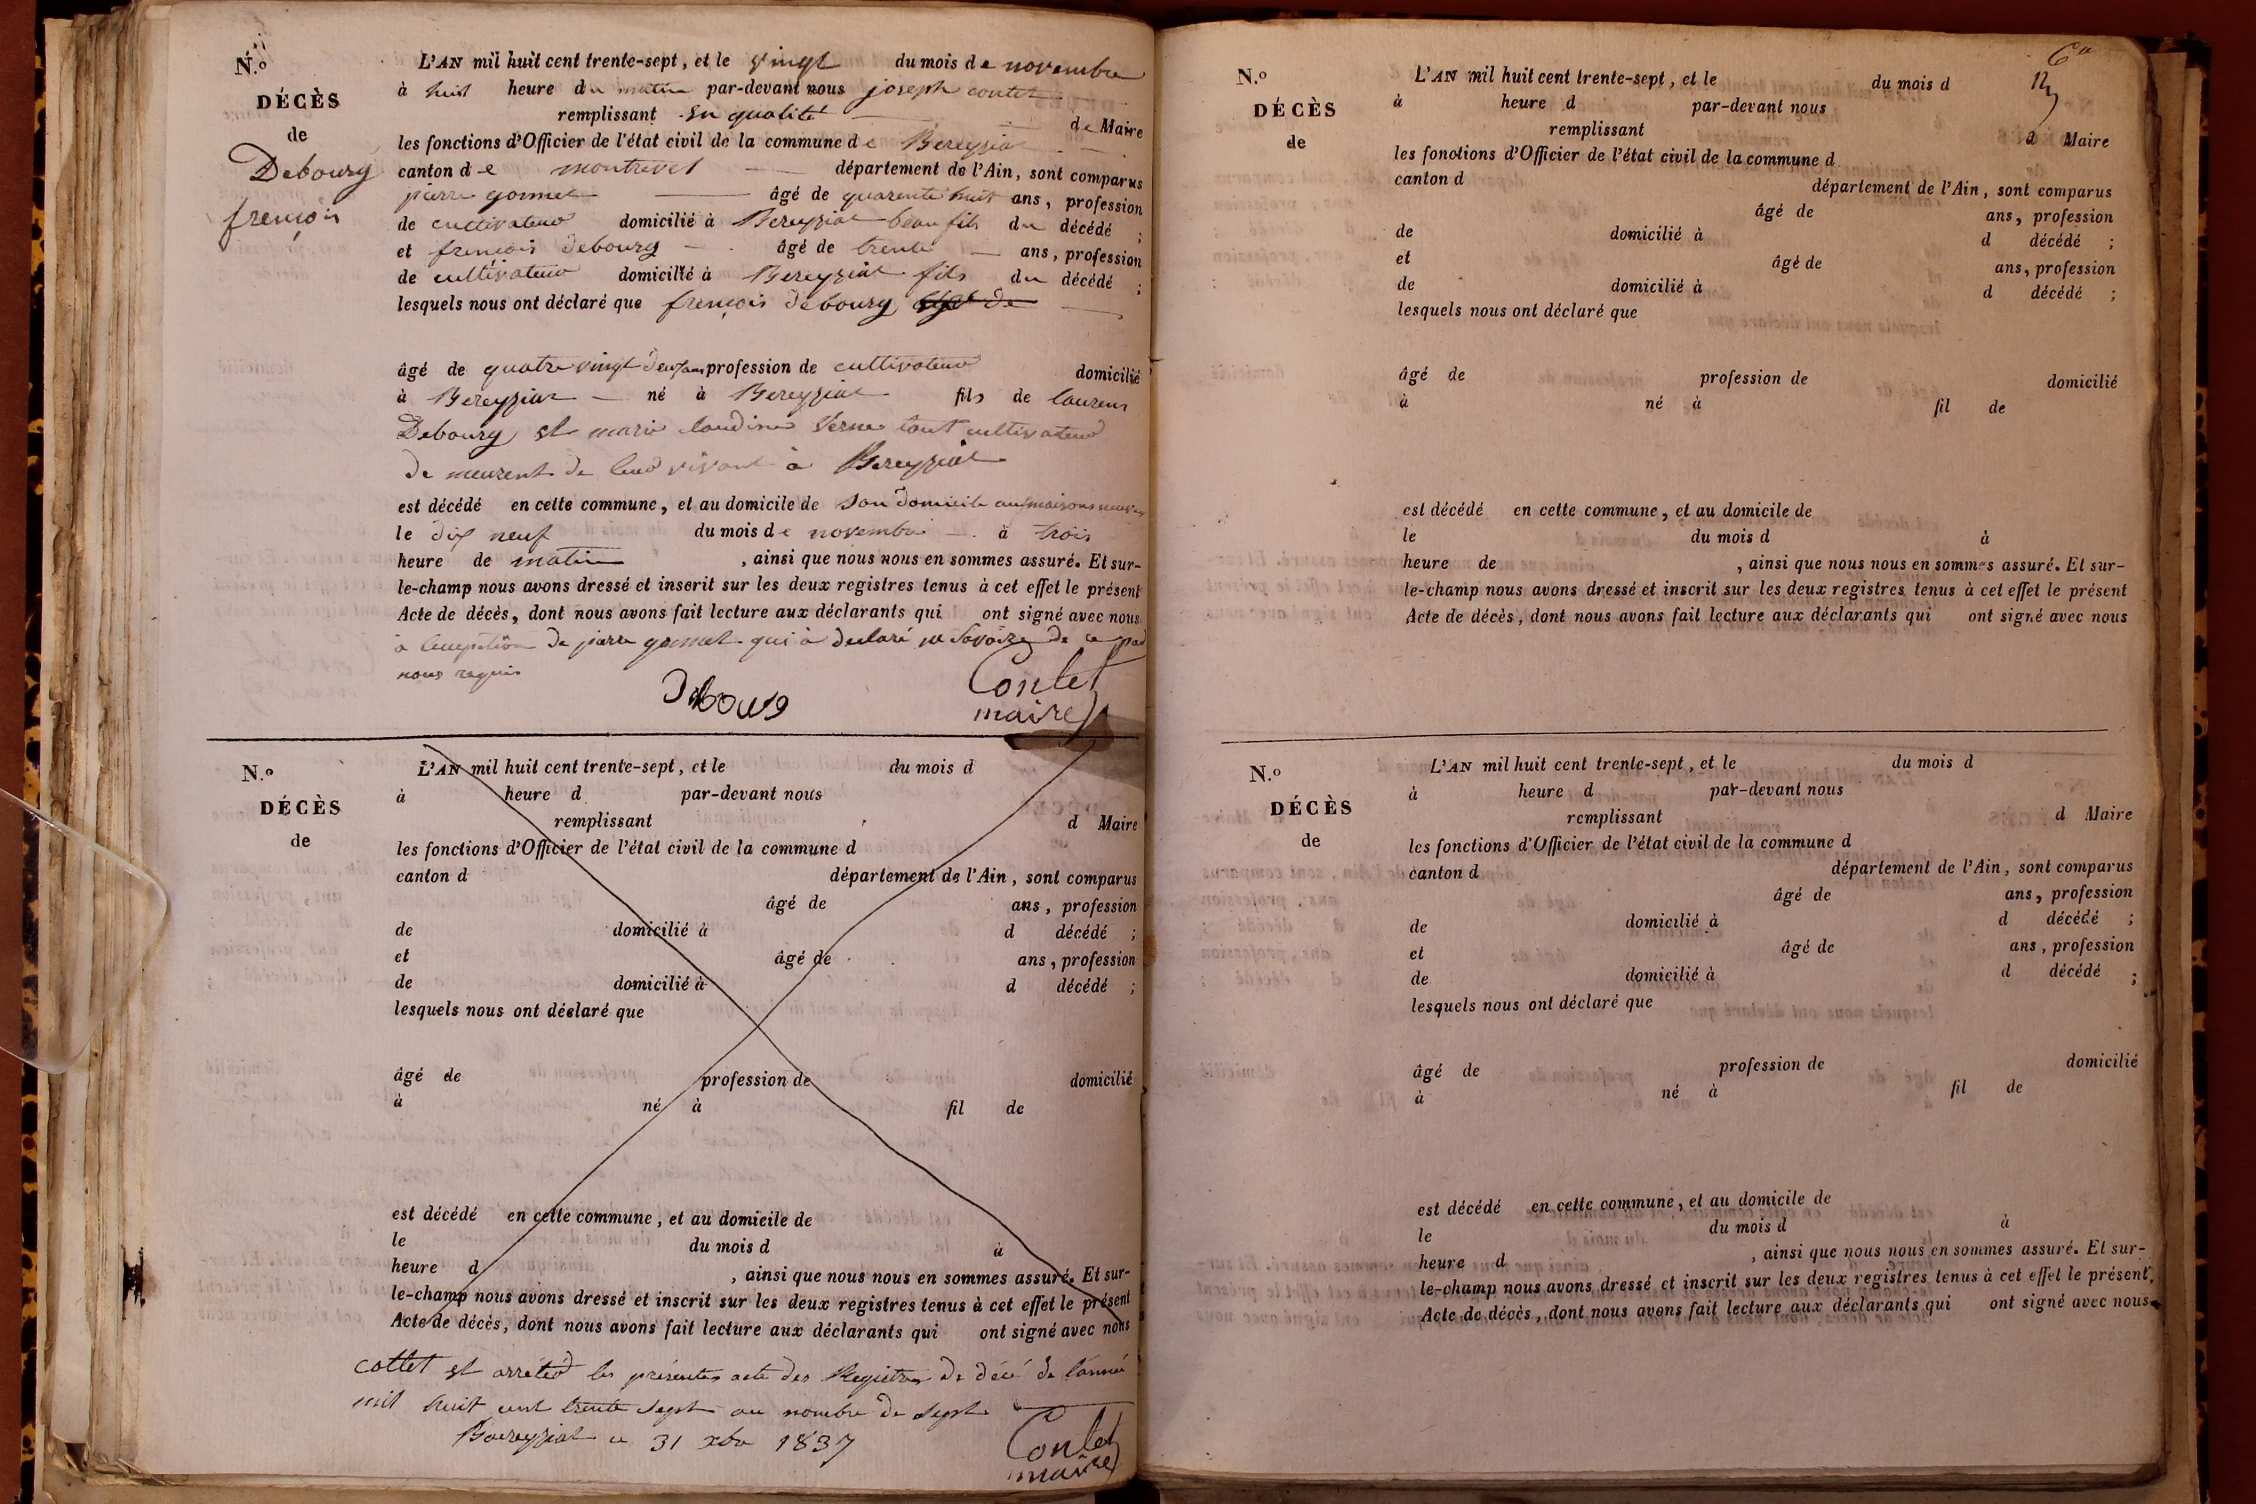 N.º
DÉCÈS
de
Debourg
françois
L'AN mil huit cent trente-sept, et le vingt du mois de novembre
à huit heure du matin par-devant nous joseph contet
remplissant en qualité de Maire
les fonctions d'Officier de l'état civil de la commune de Bereyziat
canton de montrevel département de l'Ain, sont comparus
pierre gormet âgé de quarente huit ans, profession
de cultivateur domicilié à Bereyziat beau fils du décédé ;
et françois Debourg âgé de trente ans, profession
de cultivateur domicilié à Bereyziat fils du décédé ;
lesquels nous ont déclaré que françois Debourg âgé de
âgé de quatre vingt deux ans profession de cultivateur domicilié
à Bereyziat né à Bereyziat fils de laurens
Debourg et marie Claudine Verne tout cultivateur
de meurent de leur vivant à Bereyziat
est décédé en cette commune, et au domicile de son domicile au maisons neuves
le dix neuf du mois de novembre à trois
heure de matin , ainsi que nous nous en sommes assuré. Et sur-
le-champ nous avons dressé et inscrit sur les deux registres tenus à cet effet le présent
Acte de décès, dont nous avons fait lecture aux déclarants qui ont signé avec nous
à l'exception de pierre gormet qui à declaré ne savoire de ce par
nous requis
Debourg
Contet
maire
N.º
DÉCÈS
de
L'AN mil huit cent trente-sept, et le du mois d
à heure d par-devant nous
remplissant d Maire
les fonctions d'Officier de l'état civil de la commune d
canton d département de l'Ain, sont comparus
âgé de ans, profession
de domicilié à d décédé ;
et âgé de ans, profession
de domicilié à d décédé ;
lesquels nous ont déclaré que
âgé de profession de domicilié
à né à fil de
est décédé en cette commune, et au domicile de
le du mois d à
heure d , ainsi que nous nous en sommes assuré. Et sur-
le-champ nous avons dressé et inscrit sur les deux registres tenus à cet effet le présent
Acte de décès, dont nous avons fait lecture aux déclarants qui ont signé avec nous
et arrêté les présentes acte des Registres de décé de l'année
mil huit cent trente sept au nombre de sept
Bereyziat ce 31 xbre 1837
Contet
maire
N.º
DÉCÈS
de
L'AN mil huit cent trente-sept, et le du mois d
à heure d par-devant nous
remplissant d Maire
les fonctions d'Officier de l'état civil de la commune d
canton d département de l'Ain, sont comparus
âgé de ans, profession
de domicilié à d décédé ;
et âgé de ans, profession
de domicilié à d décédé ;
lesquels nous ont déclaré que
âgé de profession de domicilié
à né à fil de
est décédé en cette commune, et au domicile de
le du mois d à
heure de , ainsi que nous nous en sommes assuré. Et sur-
le-champ nous avons dressé et inscrit sur les deux registres tenus à cet effet le présent
Acte de décès, dont nous avons fait lecture aux déclarants qui ont signé avec nous
N.º
DÉCÈS
de
L'AN mil huit cent trente-sept, et le du mois d
à heure d par-devant nous
remplissant d Maire
les fonctions d'Officier de l'état civil de la commune d
canton d département de l'Ain, sont comparus
âgé de ans, profession
de domicilié à d décédé ;
et âgé de ans, profession
de domicilié à d décédé ;
lesquels nous ont déclaré que
âgé de profession de domicilié
à né à fil de
est décédé en cette commune, et au domicile de
le du mois d à
heure d , ainsi que nous nous en sommes assuré. Et sur-
le-champ nous avons dressé et inscrit sur les deux registres tenus à cet effet le présent
Acte de décès, dont nous avons fait lecture aux déclarants qui ont signé avec nous